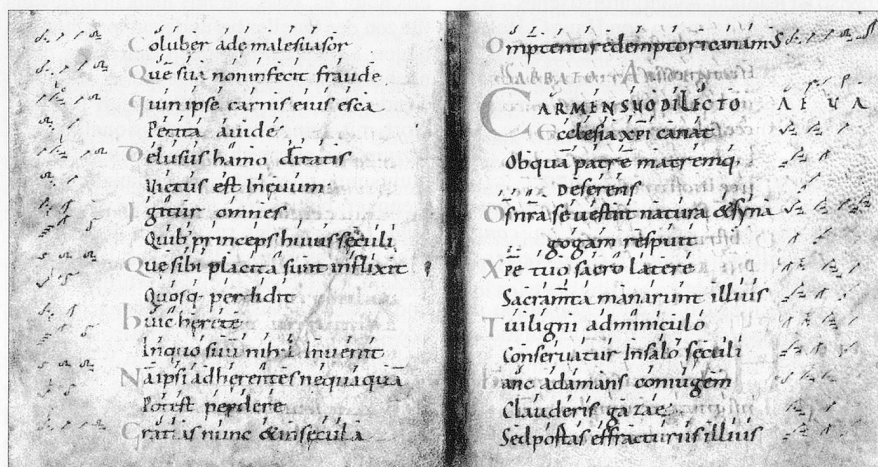 Coluber adę malesuasor
Quē sua non infecit fraude
Quin ipse carnis eius esca
Petita auide
Delusus hamo ditatis
Victus est In euum
Igitur omnes
Quib; princeps huius sęculi
Quę sibi placita sunt inflixit
Quosq; perdidit
huic herete
In quo suū nihil Inuenit
Nā ipsi adherentes nequaquā
Potest perdere
Gratias nunc & in secula
Omptentis redemptori canamS
SABBATO
CARMEN SUO DILECTO A E U A
Ecclesia xpi canat
Ob quā patrē matremq;
Deserens
Ds nra se uestiit natura & syna
gogam respuit
Xpe tuo sacro latere
Sacramta manarunt illius
Tui ligni adminiculo
Conseruatur In salo seculi
anc adamans coniugem
Clauderis gazae
Sed portas effracturus illius